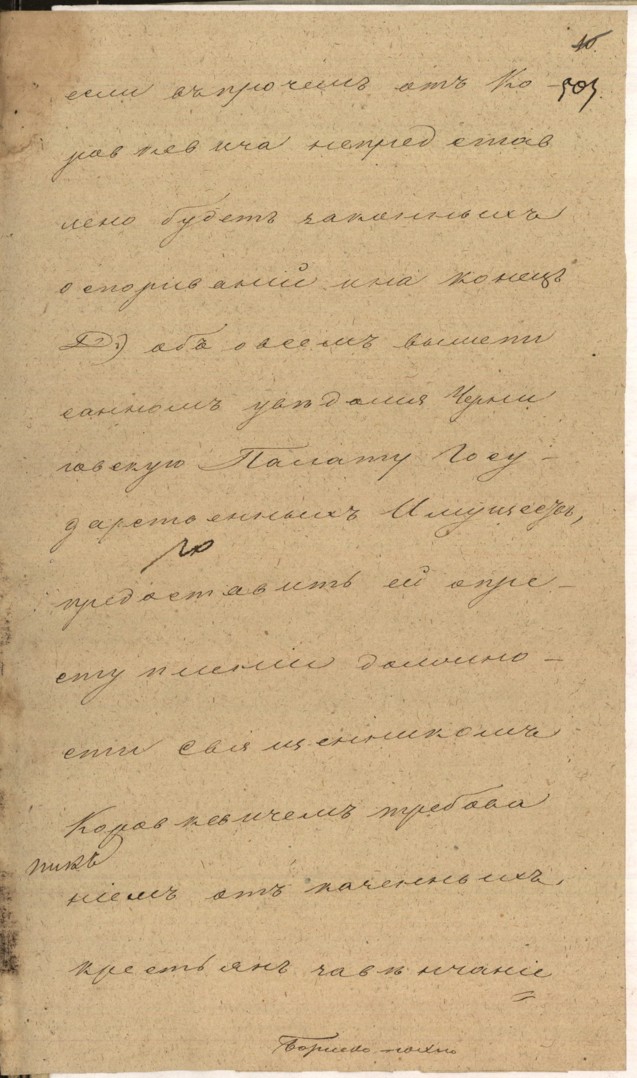 15
503
если впрочемъ отъ Ко-
ровкевича непредстав
лено будетъ законныхъ
оспориваній и на конецъ
Д.) обо всемъ вышепи
санномъ увѣдомя Черни
говскую Палату Госу-
дарственныхъ Имуществъ,
предоставить ей о пре-
ступленіи должно-
сти Священникомъ
Коровкевичемъ требова
ніемъ отъ казенныхъ
крестьянъ за вѣнчаніе